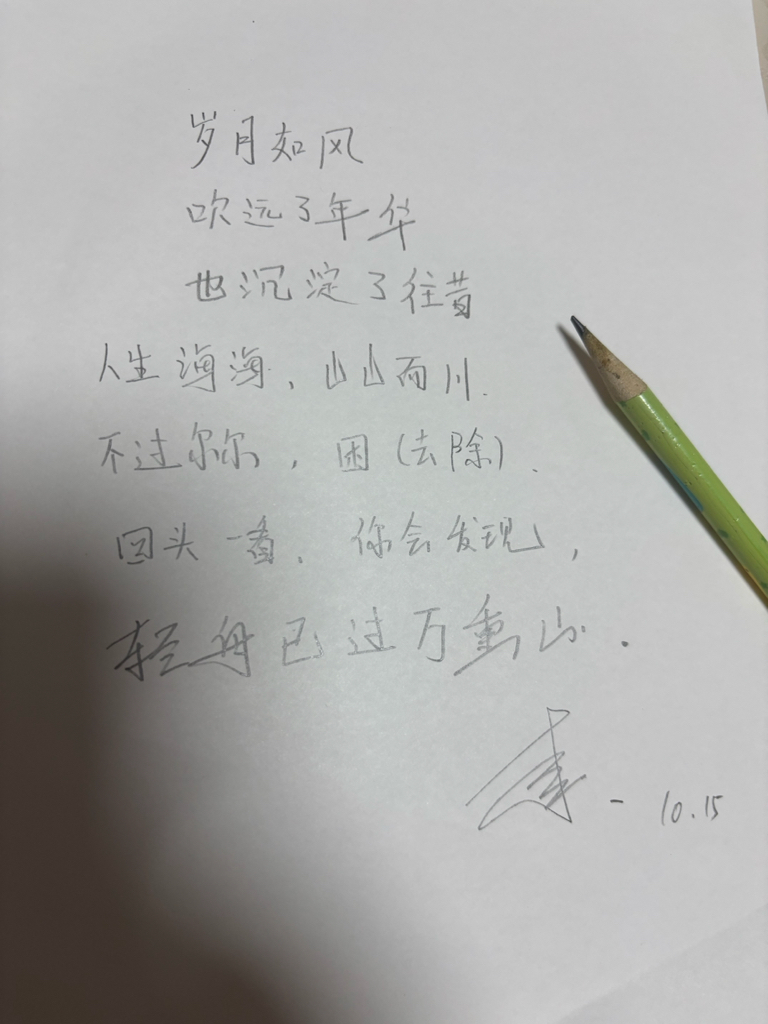 岁月如风
吹远了年华
也沉淀了往昔
人生海海，山山而川.
不过尔尔，困(去除).
回头一看，你会发现，
轻舟已过万重山.
- 10.15